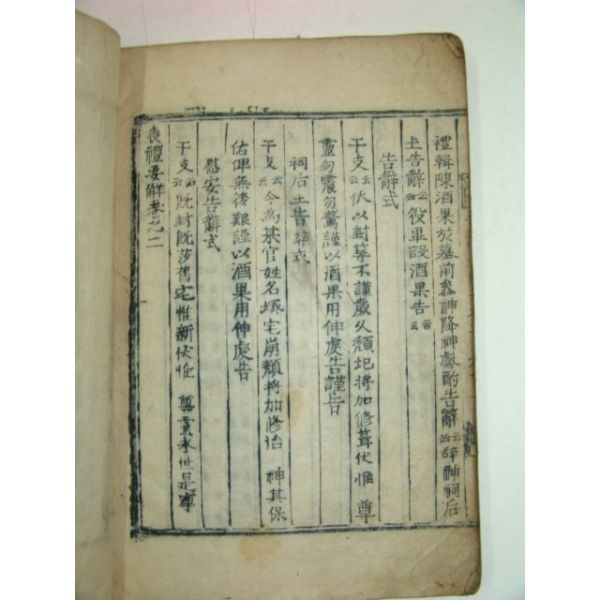 禮輯陳酒果於墓前參神降神獻酌告辭云云辭神祠后
土告辭云云役畢設酒果告云云
告辭式
干支云云伏以封築不謹歲久頹圮將加修葺伏惟 尊
靈勿震勿驚謹以酒果用伸虔告謹告
祠后土告辭式
干支云云今爲某官姓名塚宅崩頹將加修治 神其保
佑俾無後艱謹以酒果用伸虔告
慰安告辭式
干支云云旣封旣莎舊宅惟新伏惟 尊靈永世是寧
喪禮要解卷之二